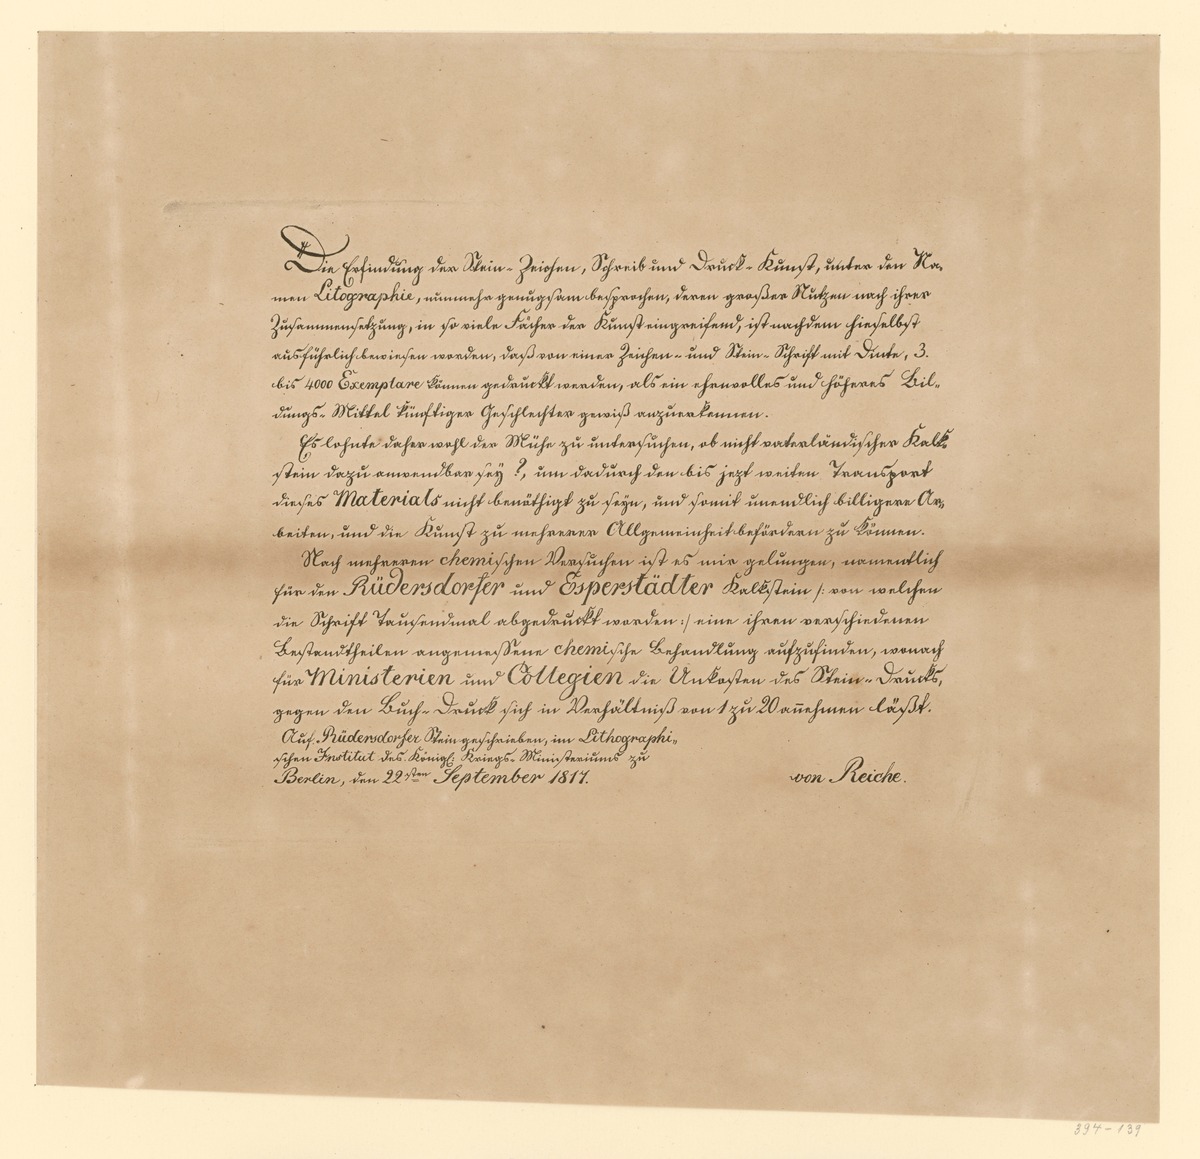 Die Erfindung der Stein-Zeichen, Schreib und Druck-Kunst, unter den Na-
men Litographie, nunmehr genugsam besprochen, deren großer Nutzen nach ihrer
Zusammensetzung, in so viele Fächer der Kunst eingreifend, ist nachdem hieselbst
ausführlich bewiesen worden, daß von einer Zeichen- und Stein-Schrift mit Dinte, 3.
bis 4000 Exemplare können gedruckt werden, als ein ehrenvolles und höheres Bil-
dungs-Mittel künftiger Geschlechter gewiß anzuerkennen.
Es lohnte daher wohl der Mühe zu untersuchen, ob nicht vaterländischer Kalk-
stein dazu anwendbar sey?, um dadurch den bis jezt weiten Transport
dieses Materials nicht benöthigt zu seyn, und somit unendlich billigere Ar-
beiten, und die Kunst zu mehrerer Allgemeinheit befördern zu können.
Nach mehreren chemischen Versuchen ist es mir gelungen, namentlich
für den Rüdersdorfer und Esperstädter Kalkstein /: von welchen
die Schrift Tausendmal abgedruckt worden :/ eine ihren verschiedenen
Bestandtheilen angemessene chemische Behandlung aufzufinden, wonach
für Ministerien und Collegien die Unkosten des Stein-Drucks,
gegen den Buch-Druck sich in Verhältniß von 1 zu 20 an̄ehmen läßt.
Auf Rüdersdorfer Stein geschrieben, im Lithographi-
schen Institut des Königl: Kriegs-Ministeriums zu
Berlin, den 22sten September 1817.
von Reiche.
394-139